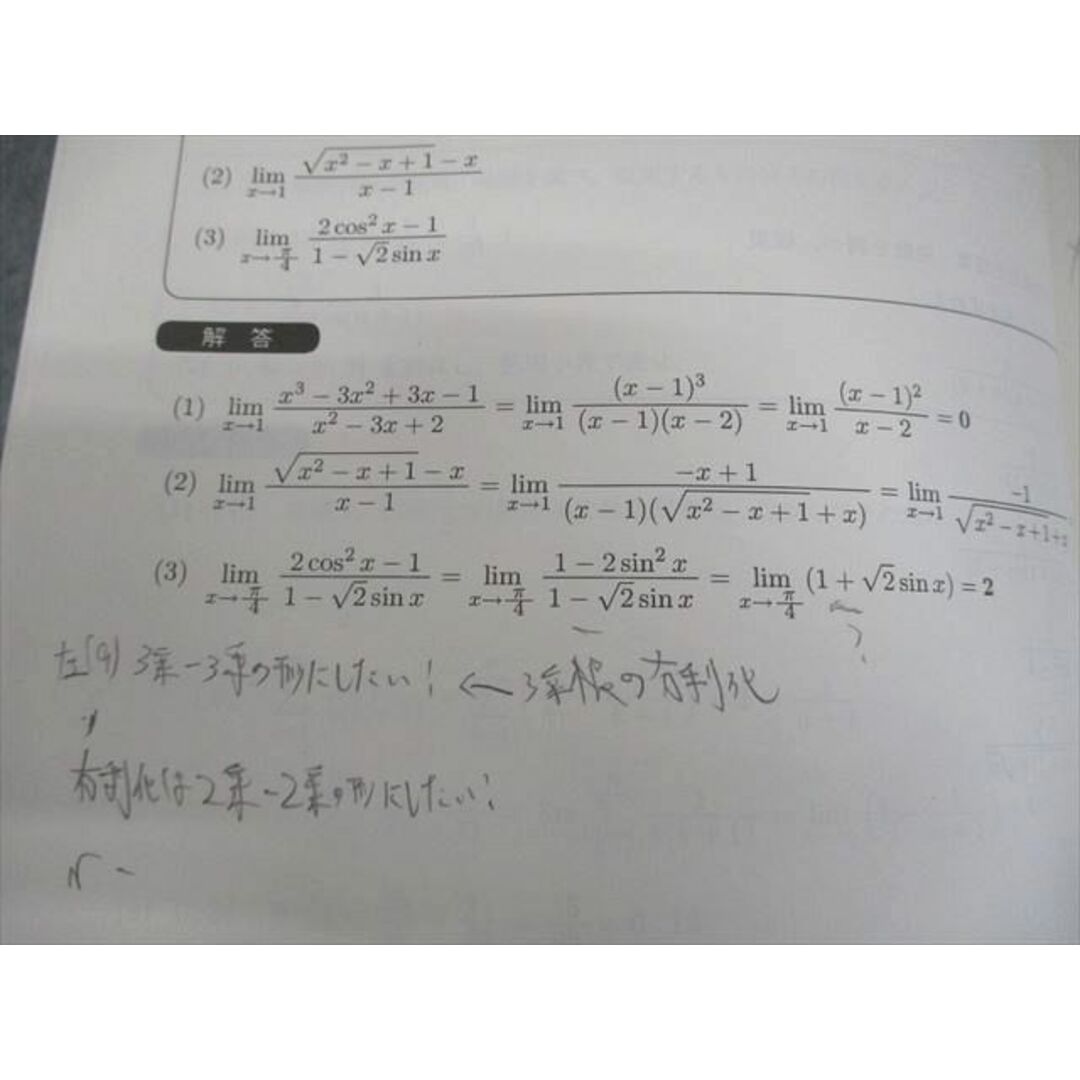 (2) lim x→1 √(x² − x + 1) − x / x − 1
(3) lim x→π/4 2cos² x − 1 / 1 − √2 sin x
解 答
(1) lim x→1 x³ − 3x² + 3x − 1 / x² − 3x + 2 = lim x→1 (x − 1)³ / (x − 1)(x − 2) = lim x→1 (x − 1)² / x − 2 = 0
(2) lim x→1 √(x² − x + 1) − x / x − 1 = lim x→1 −x + 1 / (x − 1)(√(x² − x + 1) + x) = lim x→1 −1 / √(x² − x + 1) + x
(3) lim x→π/4 2cos² x − 1 / 1 − √2 sin x = lim x→π/4 1 − 2 sin² x / 1 − √2 sin x = lim x→π/4 (1 + √2 sin x) = 2
?
3乗−3乗の形にしたい! ← 3乗根の有利化
有利化は2乗−2乗の形にしたい!
√ −